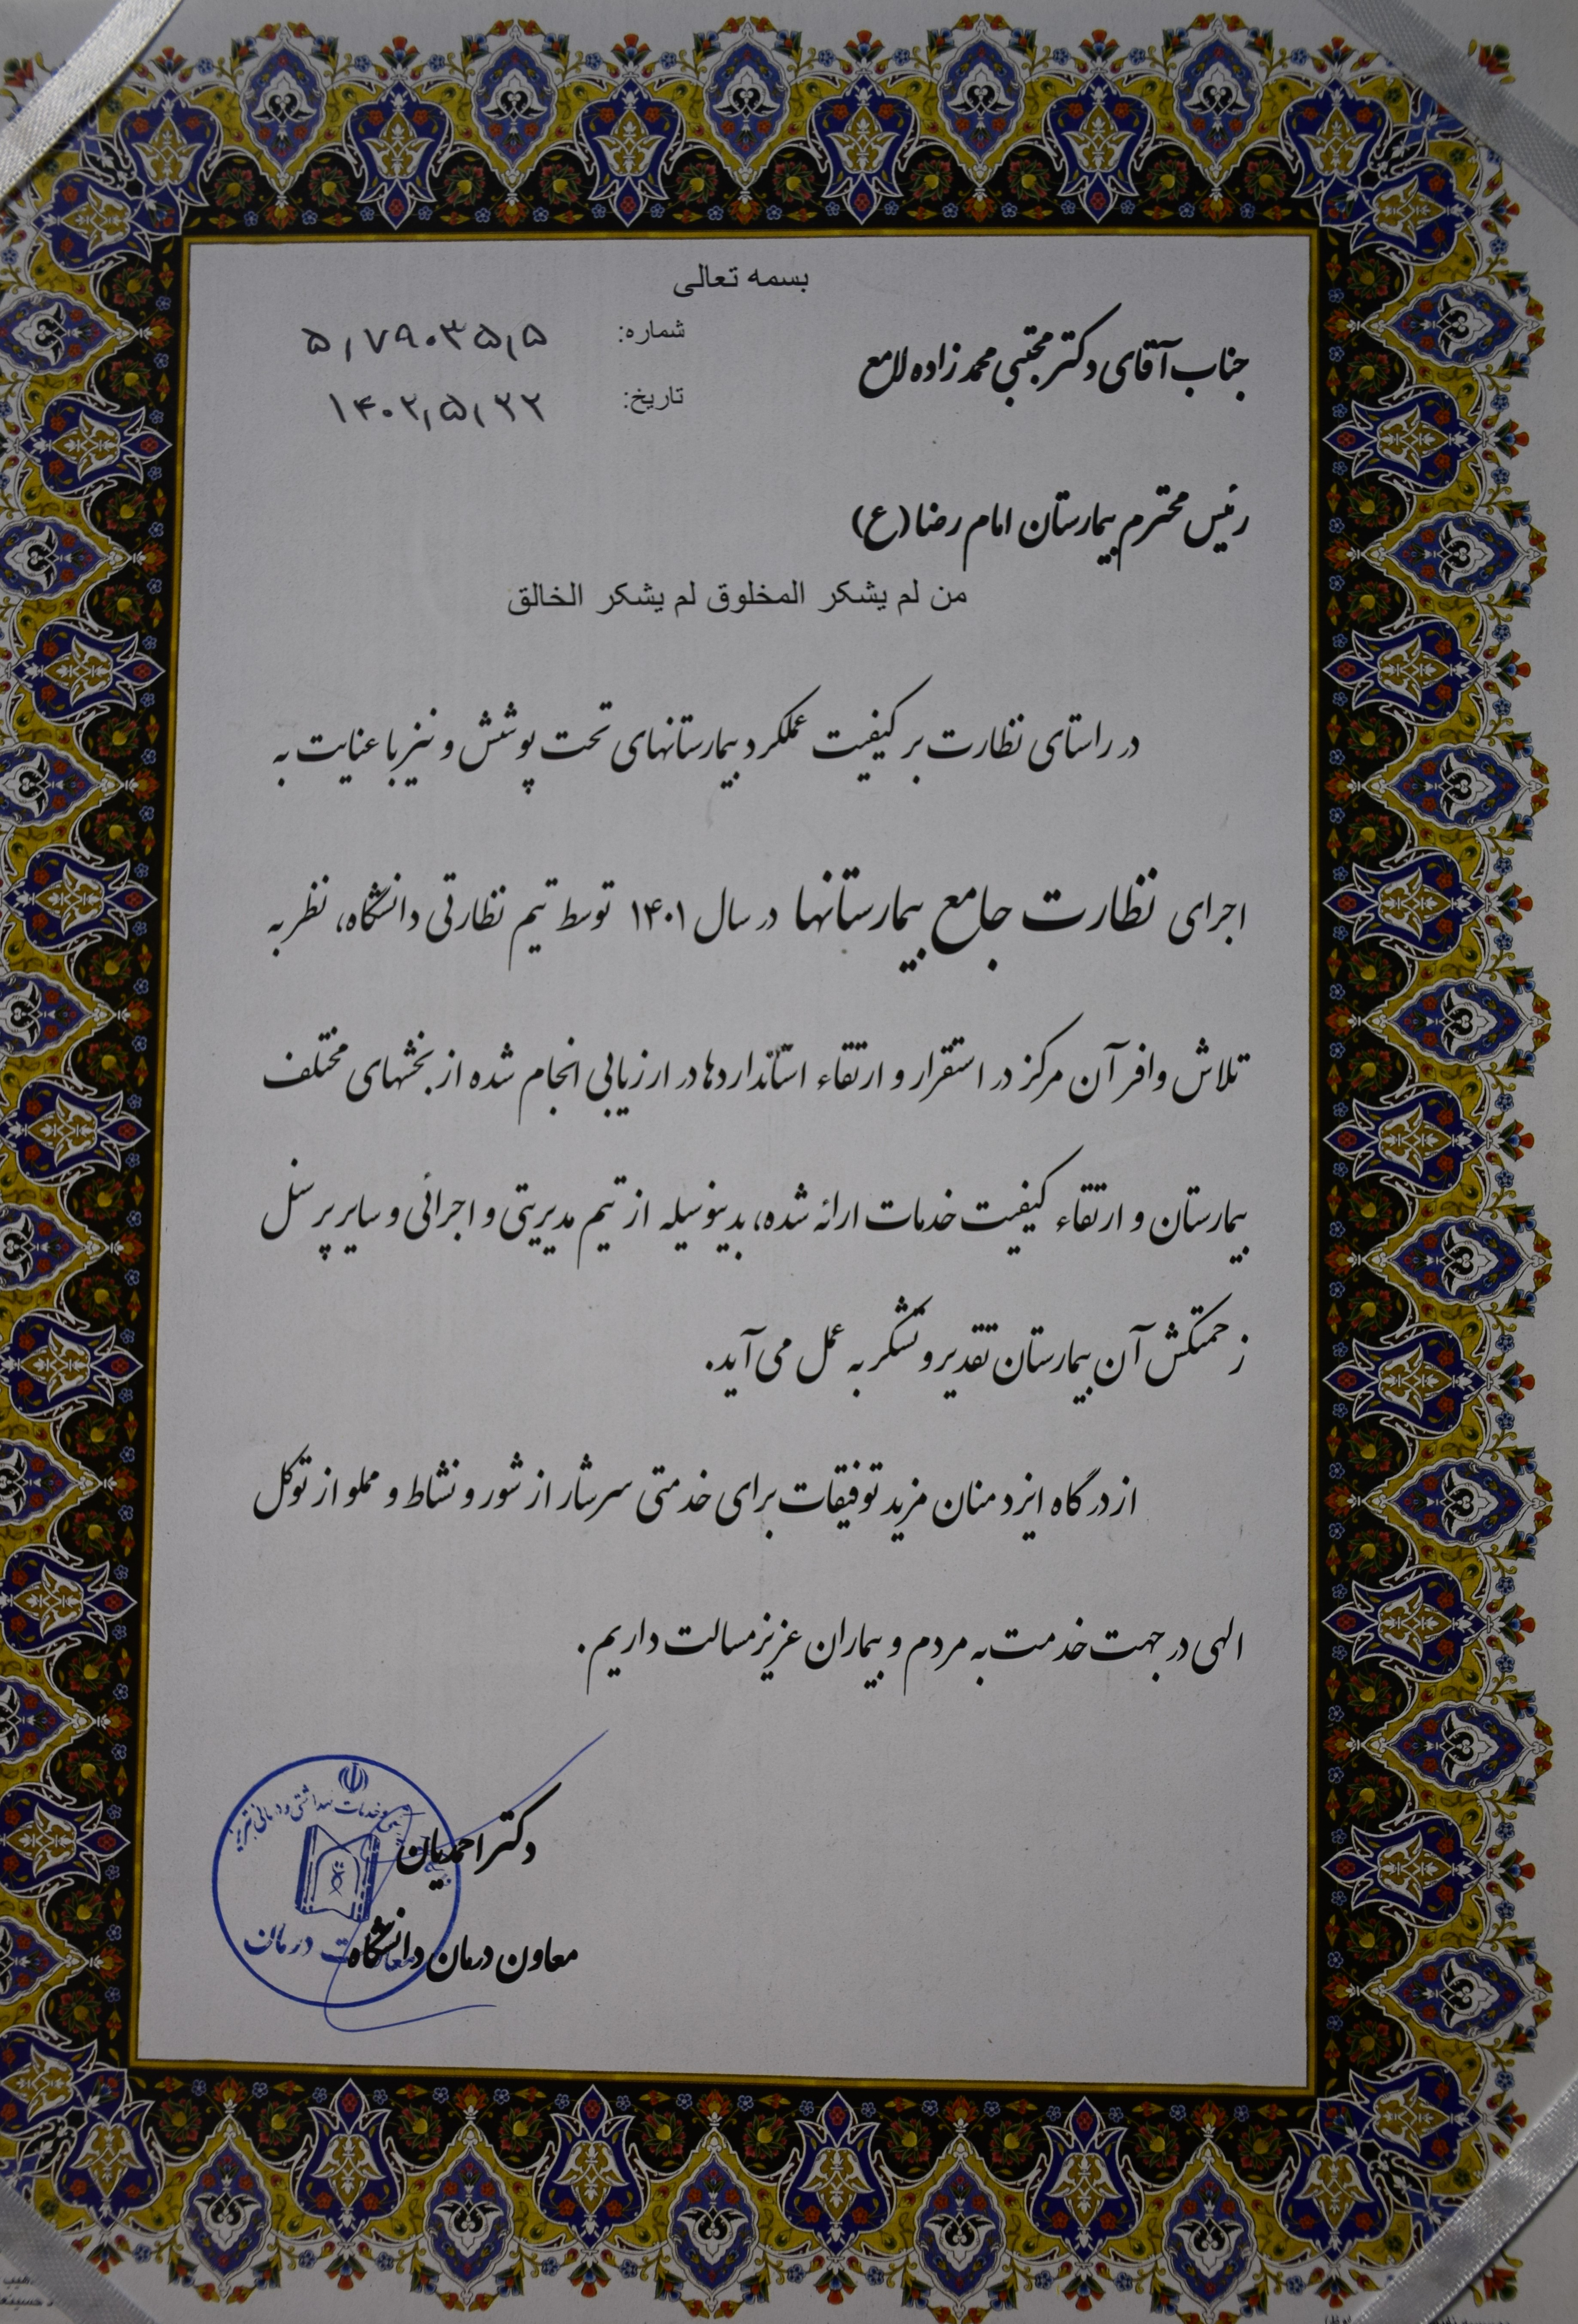 بسمه تعالی
شماره: ۵/۷۹۰۳۵/۵
تاریخ: ۱۴۰۲/۵/۲۲
جناب آقای دکتر مجتبی محمدزاده لامع
رئیس محترم بیمارستان امام رضا (ع)
من لم یشکر المخلوق لم یشکر الخالق
در راستای نظارت بر کیفیت عملکرد بیمارستانهای تحت پوشش و نیز با عنایت به
اجرای نظارت جامع بیمارستانها در سال ۱۴۰۱ توسط تیم نظارتی دانشگاه، نظر به
تلاش وافر آن مرکز در استقرار و ارتقاء استانداردها در ارزیابی انجام شده از بخشهای مختلف
بیمارستان و ارتقاء کیفیت خدمات ارائه شده، بدینوسیله از تیم مدیریتی و اجرائی و سایر پرسنل
زحمتکش آن بیمارستان تقدیر و تشکر به عمل می آید.
از درگاه ایزد منان مزید توفیقات برای خدمتی سرشار از شور و نشاط و مملو از توکل
الهی در جهت خدمت به مردم و بیماران عزیز مسالت داریم.
دکتر احمدیان
معاون درمان دانشگاه
و خدمات بهداشتی و درمانی تبریز
معاونت درمان